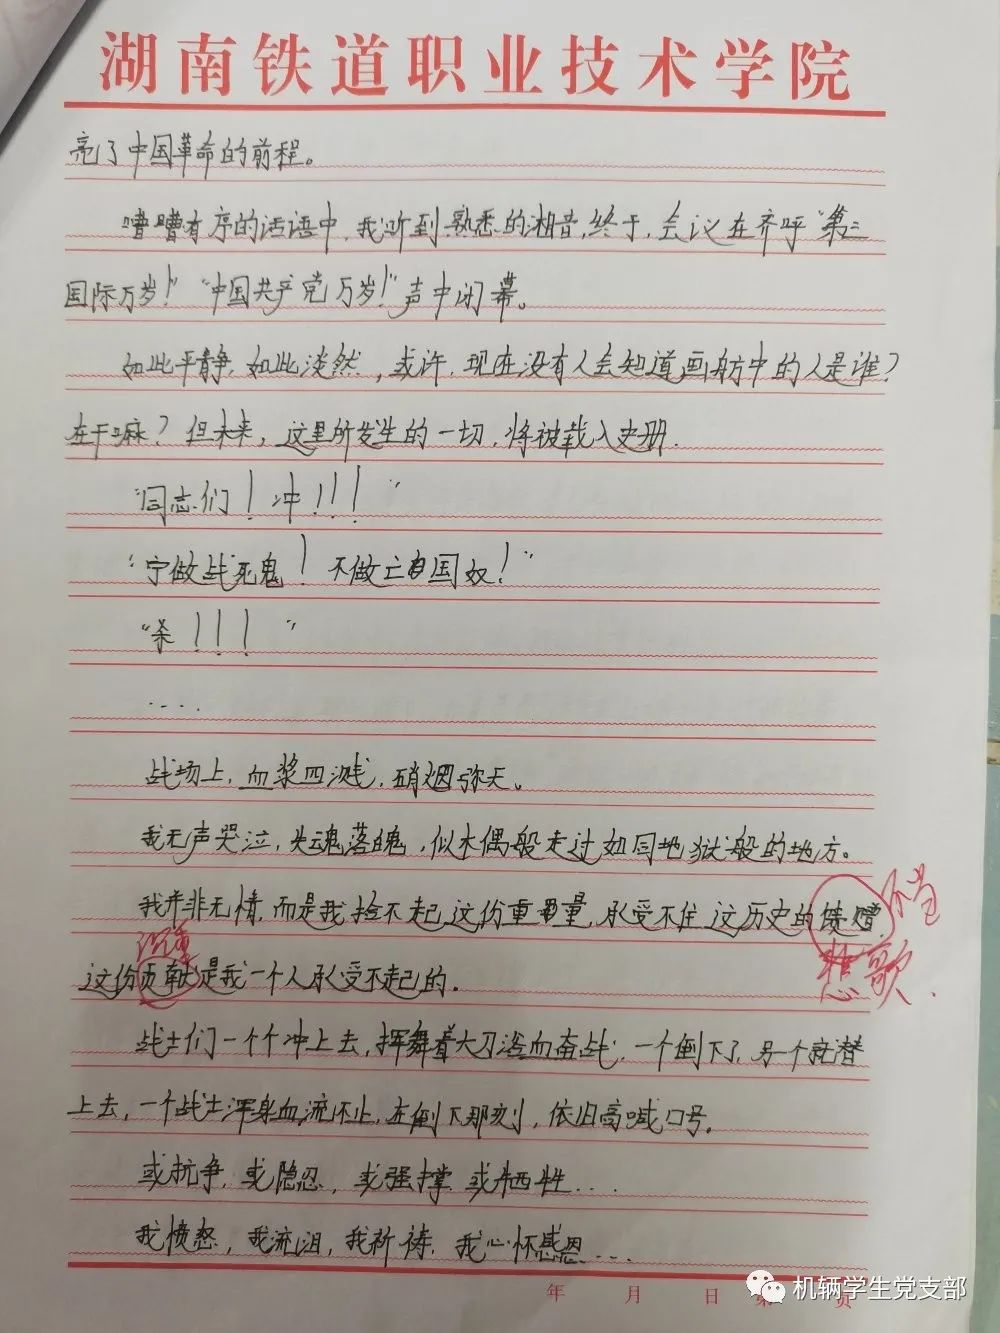 湖南铁道职业技术学院
亮了中国革命的前程。
嘈嘈有序的话语中,我听到熟悉的湘音,终于,会议在齐呼"第三
国际万岁!""中国共产党万岁!"声中闭幕。
如此平静,如此淡然,或许,现在没有人会知道画舫中的人是谁?
在干嘛?但未来,这里所发生的一切,将被载入史册.
"同志们!冲!!!"
"宁做战死鬼!不做亡国奴!"
"杀!!!"
....
战场上,血浆四溅,硝烟弥天。
我无声哭泣,失魂落魄,似木偶般走过如同地狱般的地方。
我并非无情,而是我捡不起这份重量,承受不住这历史的馈赠,
不当
悲歌.
沉重
这份贡献是我一个人承受不起的。
战士们一个个冲上去,挥舞着大刀浴血奋战,一个倒下了,另一个就潜
上去,一个战士浑身血流不止,在倒下那刻,依旧高喊口号。
或抗争,或隐忍,或强撑,或牺牲....
我愤怒,我流泪,我祈祷,我心怀感恩....
年 月 日 第 页
机辆学生党支部